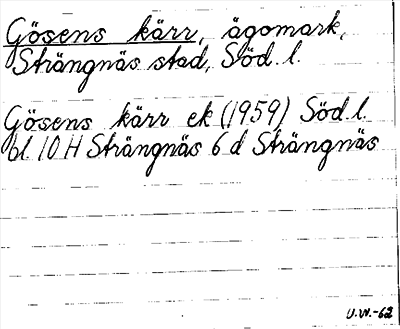 Gösens kärr, ägomark,
Strängnäs stad, Söd. l.
Gösens kärr ek (1959) Söd. l.
bl. 10 H Strängnäs 6 d Strängnäs
U.W.-62